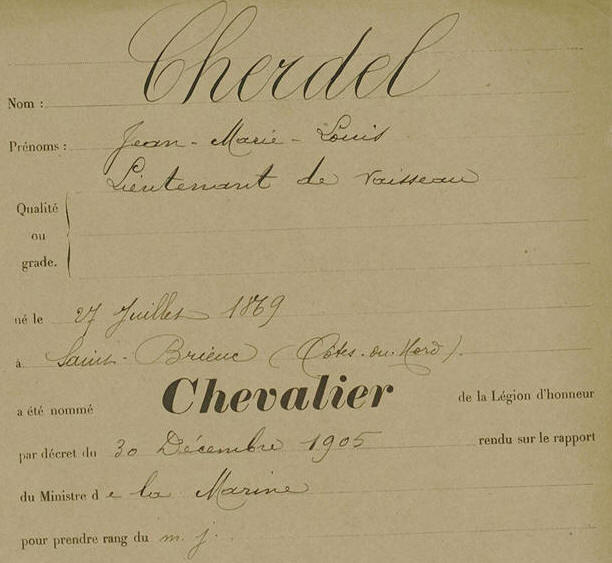 Nom : Cherdel
Prénoms : Jean-Marie-Louis
Lieutenant de vaisseau
Qualité
ou
grade.
né le 27 Juillet 1869
à Saint-Brieuc (Côtes-du-Nord).
a été nommé Chevalier de la Légion d'honneur
par décret du 30 Décembre 1905 rendu sur le rapport
du Ministre de la Marine
pour prendre rang du m. j.